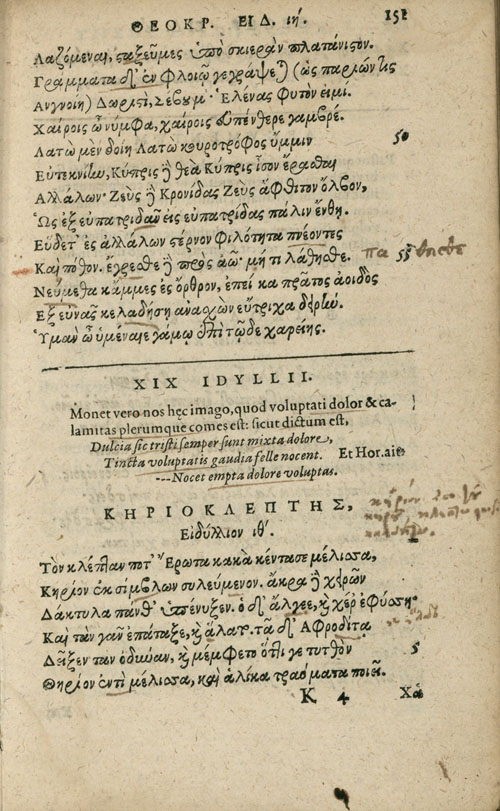 ΘΕΟΚΡ. ΕΙΔ. ιή. 151
Λαζόμεναι, σαξεῦμες ὑπὸ σκιερὰν πλατάνιστον.
Γράμματα δ' ἐν φλοιῷ γεγράψεται (ὡς παριών τις
Ανγνοίη) Δωριστὶ, Σέβου μ' Ἑλένας φυτὸν εἰμί.
Χαίροις ὦ νύμφα, χαίροις εὐπένθερε γαμβρέ.
Λατὼ μὲν δοίη Λατὼ κουροτρόφος ὔμμιν 50
Εὐτεκνίαν, Κύπρις δὲ θεὰ Κύπρις ἶσον ἔρασθαι
Αλλάλων· Ζεὺς δὲ Κρονίδας Ζεὺς ἄφθιτον ὄλβον,
Ὡς ἐξ εὐπατριδᾶν εἰς εὐπατρίδας πάλιν ἔνθῃ.
Εὕδετ' ἐς ἀλλάλων στέρνον φιλότητα πνέοντες
Καὶ πόθον. ἔγρεσθε δὲ πρὸς ἀῶ· μή τι λάθησθε. 55
Νεύμεθα κἄμμες ἐς ὄρθρον, ἐπεί κα πρᾶτος ἀοιδὸς
Εξ εὐνᾶς κελαδήσῃ ἀνασχὼν εὔτριχα δειρίω.
Ὑμὰν ὦ ὑμέναιε γάμῳ ἐπὶ τῷδε χαρείης.
XIX IDYLLII.
Monet vero nos hęc imago, quod voluptati dolor & ca-
lamitas plerumque comes est: sicut dictum est,
Dulcia sic tristi semper sunt mixta dolore,
Tincta voluptatis gaudia felle nocent. Et Hor. ait
---Nocet empta dolore voluptas.
ΚΗΡΙΟΚΛΕΠΤΗΣ,
Εἰδύλλιον ιθ'.
Τὸν κλέπταν ποτ' Ἔρωτα κακὰ κέντασε μέλισσα,
Κηρίον ἐκ σίμβλων συλεύμενον. ἄκρα δὲ χειρῶν
Δάκτυλα πάνθ' ὑπένυξεν. ὁ δ' ἄλγεε, καὶ χέρ' ἐφύσση·
Καὶ τὰν γᾶν ἐπάταξε, καὶ ἅλατο. τᾷ δ' Αφροδίτᾳ
Δεῖξεν τὰν ὀδύναν, καὶ μέμφετο ὅττι γε τυτθὸν 5
Θηρίον ἐντὶ μέλισσα, καὶ ἁλίκα τραύματα ποιεῖ.
K 4 Χἁ